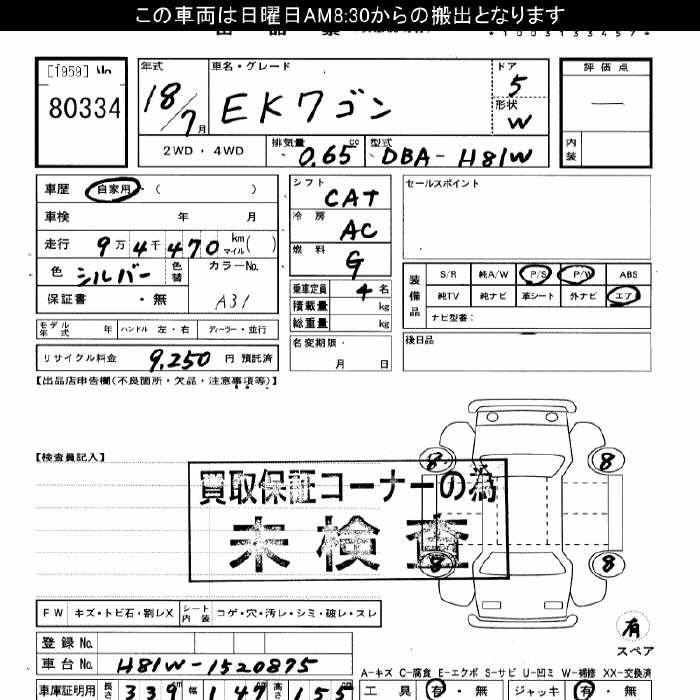 この車両は日曜日AM8:30からの搬出となります
*1003133457*
[1959] No
80334
年式 車名・グレード ドア 評価点
18/7月 EKワゴン 5
形状 W
2WD・4WD 排気量 0.65 cc 型式 DBA-H81W 内装
車歴 自家用 ( ) シフト CAT セールスポイント
車検 年 月 冷房 AC
走行 9万4千470 km マイル ( ) 燃料 G
色 シルバー 色替 カラーNo. A31
保証書 ・無
乗車定員 4名
積載量 kg
総重量 kg
装備品 S/R 純A/W P/S P/W ABS
純TV 純ナビ 革シート 外ナビ エア
ナビ型番:
モデル年式 年 ハンドル 左・右 ディーラー・並行
名変期限・ 月 日
後日品
リサイクル料金 9,250 円 預託済
【出品店申告欄(不良箇所・欠品・注意事項等)】
【検査員記入】
買取保証コーナーの為
未検査
8 8
8 8
有
スペア
FW キズ・トビ石・割レX シート内装 コゲ・穴・汚レ・シミ・破レ・スレ
登録No.
車台No. H81W-1520875
A-キズ C-腐食 E-エクボ S-サビ U-凹ミ W-補修 XX-交換済
車庫証明用 長さ 339 幅 147 高さ 155
工具 有・無 ジャッキ 有・無